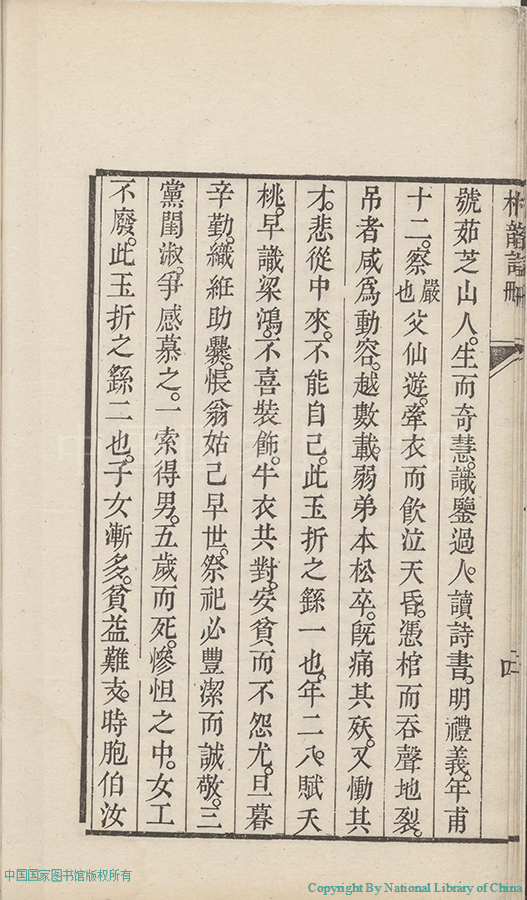 號茹芝山人。生而奇慧。識鑒過人。讀詩書。明禮義。年甫
十二。嚴察也父仙遊。牽衣而飮泣天昏。憑棺而吞聲地裂。
吊者咸爲動容。越數載。弱弟本松卒。旣痛其殀。又慟其
才。悲從中來。不能自己。此玉折之繇一也。年二八。賦夭
桃。早識梁鴻。不喜裝飾。牛衣共對。安貧而不怨尤。旦暮
辛勤。織絍助爨。悵翁姑己早世。祭祀必豐潔而誠敬。三
黨閨淑。爭感慕之。一索得男。五歲而死。慘怛之中。女工
不廢。此玉折之繇二也。子女漸多。貧益難支。時胞伯汝
中国国家图书馆版权所有
Copyright By National Library of China